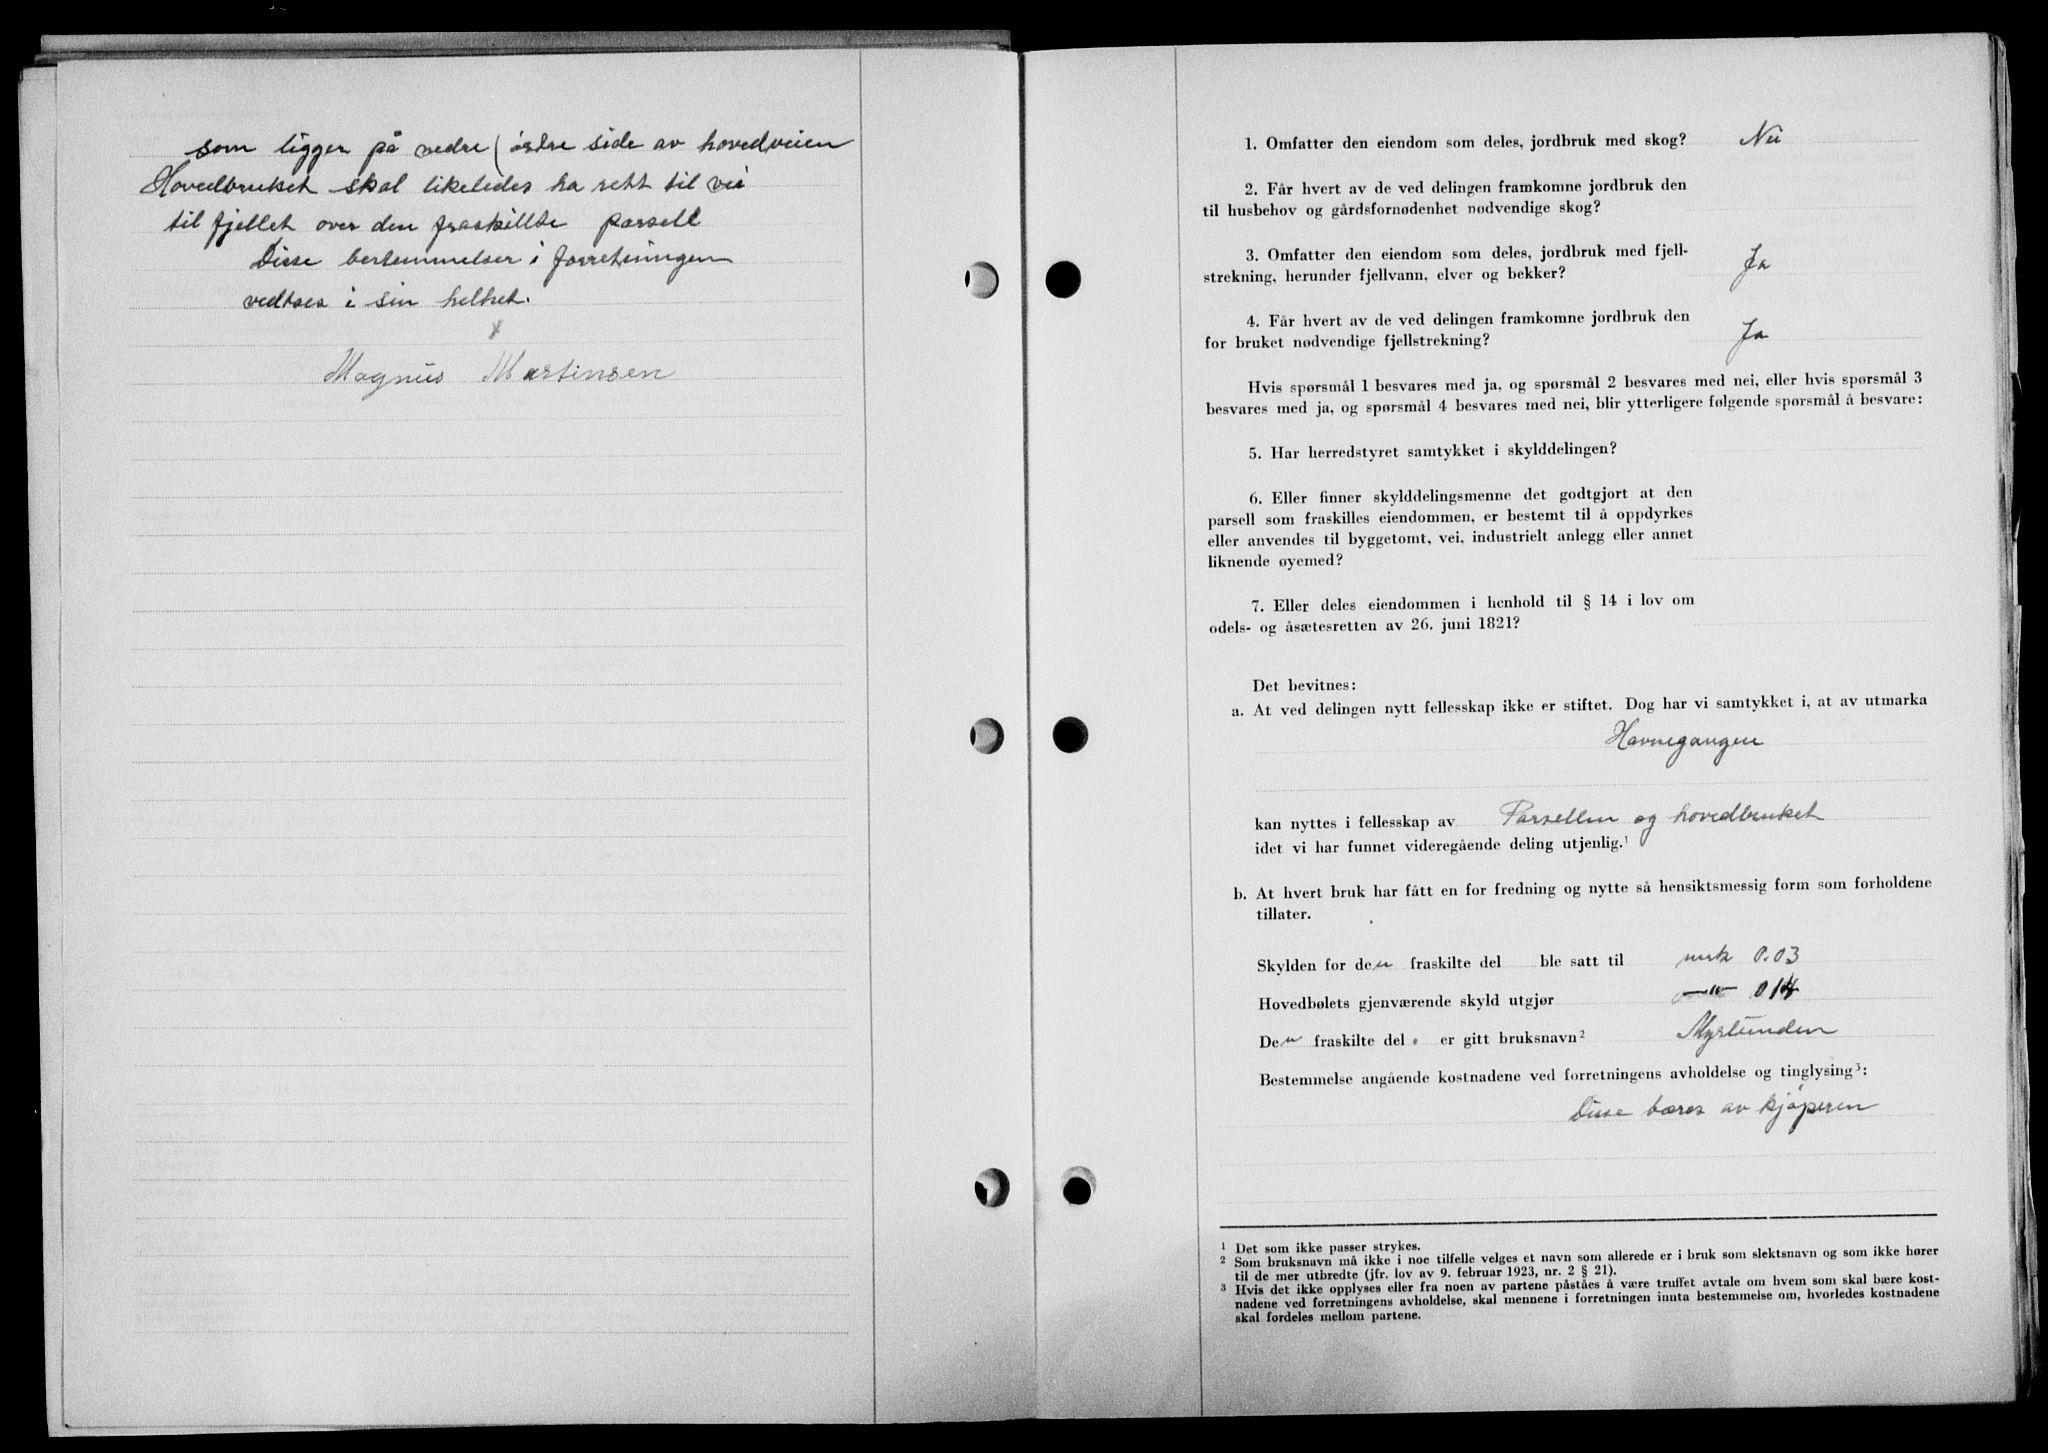 som ligger på nedre (østre side av hovedveien
Hovedbruket skal likeledes ha rett til vei
til fjellet over den fraskillte parsell
Disse bestemmelser i forretningen
vedtaes i sin helhet.
x
Magnus Martinsen
1. Omfatter den eiendom som deles, jordbruk med skog? Nei
2. Får hvert av de ved delingen framkomne jordbruk den
til husbehov og gårdsfornødenhet nødvendige skog?
3. Omfatter den eiendom som deles, jordbruk med fjell-
strekning, herunder fjellvann, elver og bekker? Ja
4. Får hvert av de ved delingen framkomne jordbruk den
for bruket nødvendige fjellstrekning? Ja
Hvis spørsmål 1 besvares med ja, og spørsmål 2 besvares med nei, eller hvis spørsmål 3
besvares med ja, og spørsmål 4 besvares med nei, blir ytterligere følgende spørsmål å besvare:
5. Har herredstyret samtykket i skylddelingen?
6. Eller finner skylddelingsmenne det godtgjort at den
parsell som fraskilles eiendommen, er bestemt til å oppdyrkes
eller anvendes til byggetomt, vei, industrielt anlegg eller annet
liknende øyemed?
7. Eller deles eiendommen i henhold til § 14 i lov om
odels- og åsætesretten av 26. juni 1821?
Det bevitnes:
a. At ved delingen nytt fellesskap ikke er stiftet. Dog har vi samtykket i, at av utmarka
Havnegangen
kan nyttes i fellesskap av Parsellen og hovedbruket
idet vi har funnet videregående deling utjenlig.¹
b. At hvert bruk har fått en for fredning og nytte så hensiktsmessig form som forholdene
tillater.
Skylden for den fraskilte del ble satt til mrk 0.03
Hovedbølets gjenværende skyld utgjør —"— 014
Den fraskilte del er gitt bruksnavn² Myrlunden
Bestemmelse angående kostnadene ved forretningens avholdelse og tinglysing³:
Disse bæres av kjøperen
¹ Det som ikke passer strykes.
² Som bruksnavn må ikke i noe tilfelle velges et navn som allerede er i bruk som slektsnavn og som ikke hører
til de mer utbredte (jfr. lov av 9. februar 1923, nr. 2 § 21).
³ Hvis det ikke opplyses eller fra noen av partene påståes å være truffet avtale om hvem som skal bære kost-
nadene ved forretningens avholdelse, skal mennene i forretningen innta bestemmelse om, hvorledes kostnadene
skal fordeles mellom partene.